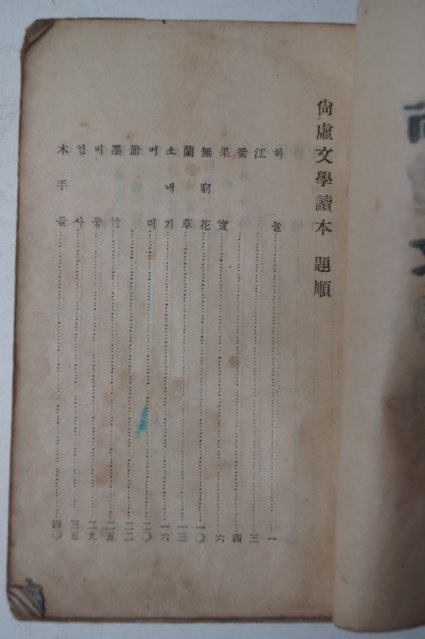 尙虛文學讀本 題順
하늘……一
江……三
꽃……四
果實……六
無窮花……一〇
蘭草……一三
소내기……一六
머리……二〇
……二二
墨竹……二五
비둥……二九
인사……三五
木手들……四〇